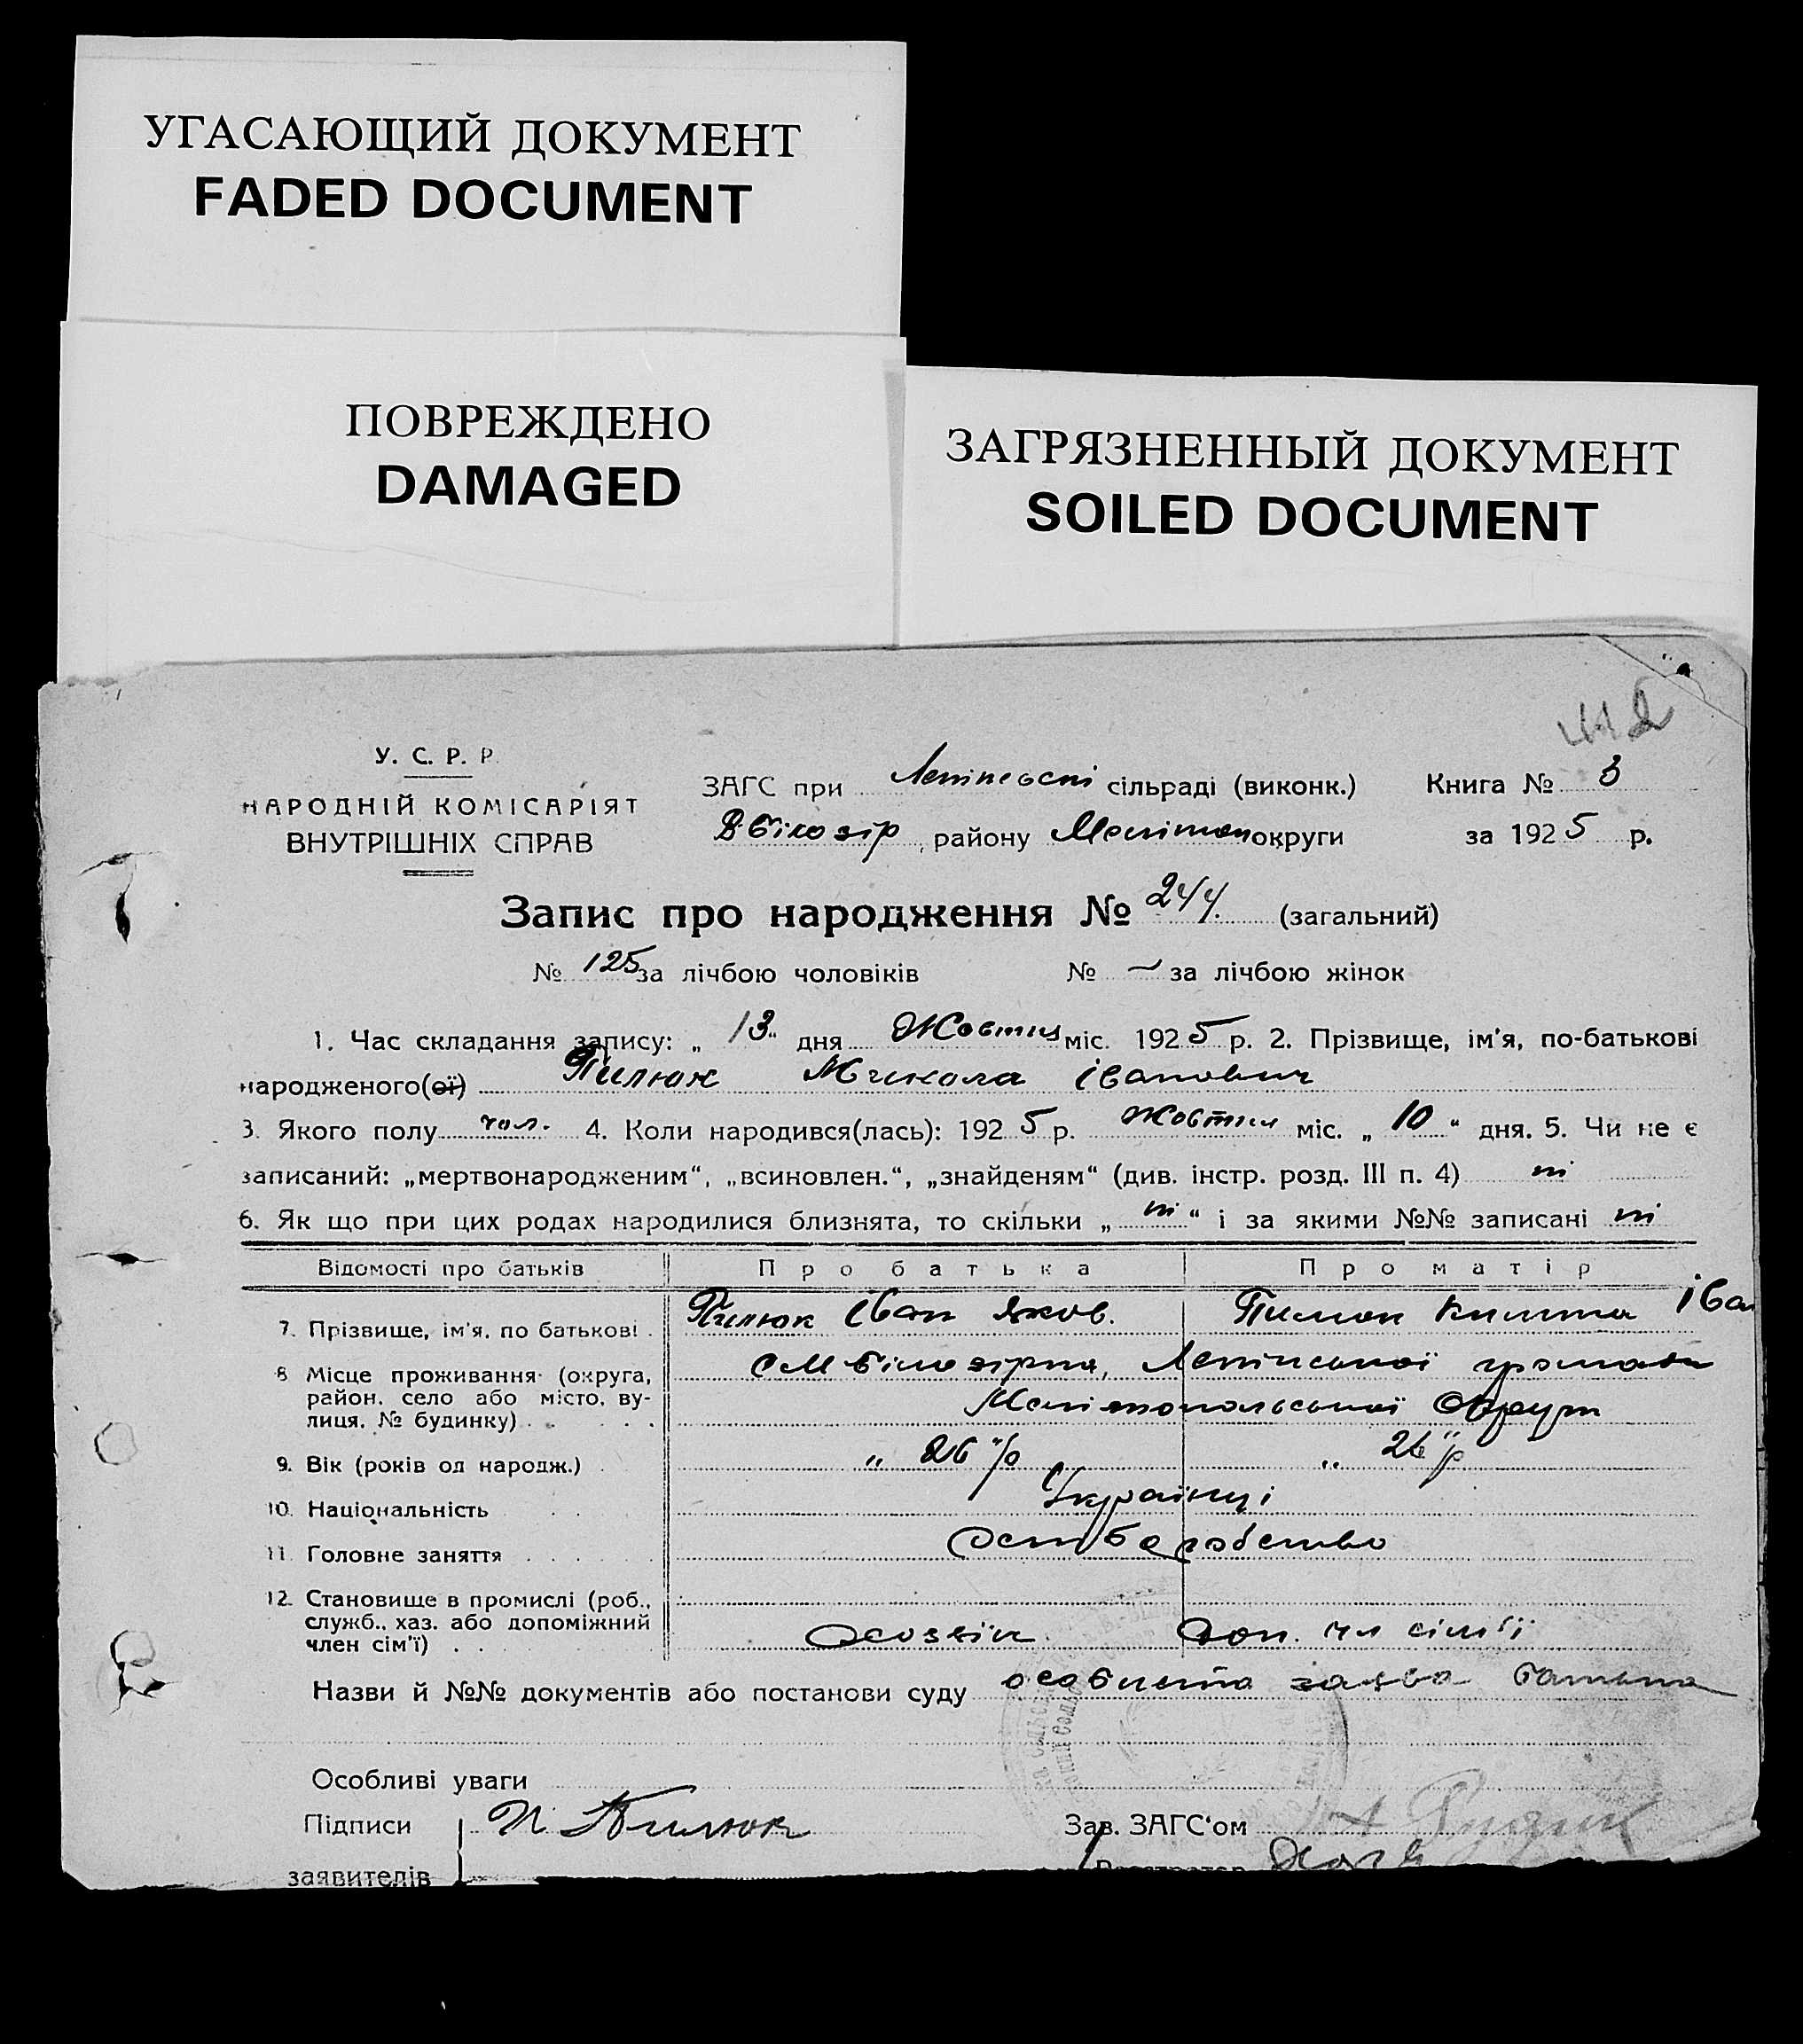 УГАСАЮЩИЙ ДОКУМЕНТ
FADED DOCUMENT
ПОВРЕЖДЕНО
DAMAGED
ЗАГРЯЗНЕННЫЙ ДОКУМЕНТ
SOILED DOCUMENT
У. С. Р. Р.
НАРОДНІЙ КОМІСАРІЯТ
ВНУТРІШНІХ СПРАВ
ЗАГС при Ленінській сільраді (виконк.) Книга № 3
В. Білозір, району Мелітоп округи за 1925 р.
Запис про народження № 244. (загальний)
№ 125 за лічбою чоловіків № — за лічбою жінок
1. Час складання запису: „ 13 " дня Жовтня міс. 1925 р. 2. Прізвище, ім'я, по-батькові
народженого(ої) Пилюк Микола Іванович
3. Якого полу чол. 4. Коли народився(лась): 1925 р. Жовтня міс. „ 10 " дня. 5. Чи не є
записаний: „мертвонародженим", „всиновлен.", „знайденям" (див. інстр. розд. III п. 4) ні
6. Як що при цих родах народилися близнята, то скільки „ ні " і за якими №№ записані ні
Відомості про батьків Про батька Про матір
7. Прізвище, ім'я, по батькові . Пилюк Іван Яков. Пилюк Іван
8. Місце проживання (округа, район, село або місто, вулиця, № будинку) . . . . Білозірка, Ленінської громади
Мелітопольської Округи
9. Вік (років од народж.) . „ 26 " р „ 26 " р
10. Національність . . . Українці
11. Головне заняття . . . . . хліборобство
12. Становище в промислі (роб., служб., хаз. або допоміжний член сім'ї) . . хозяїн. Доп. чл сім'ї
Назви й №№ документів або постанови суду особиста заява батька
Особливі уваги
Підписи И. Пилюк Зав. ЗАГС'ом
заявителів Реєстратор